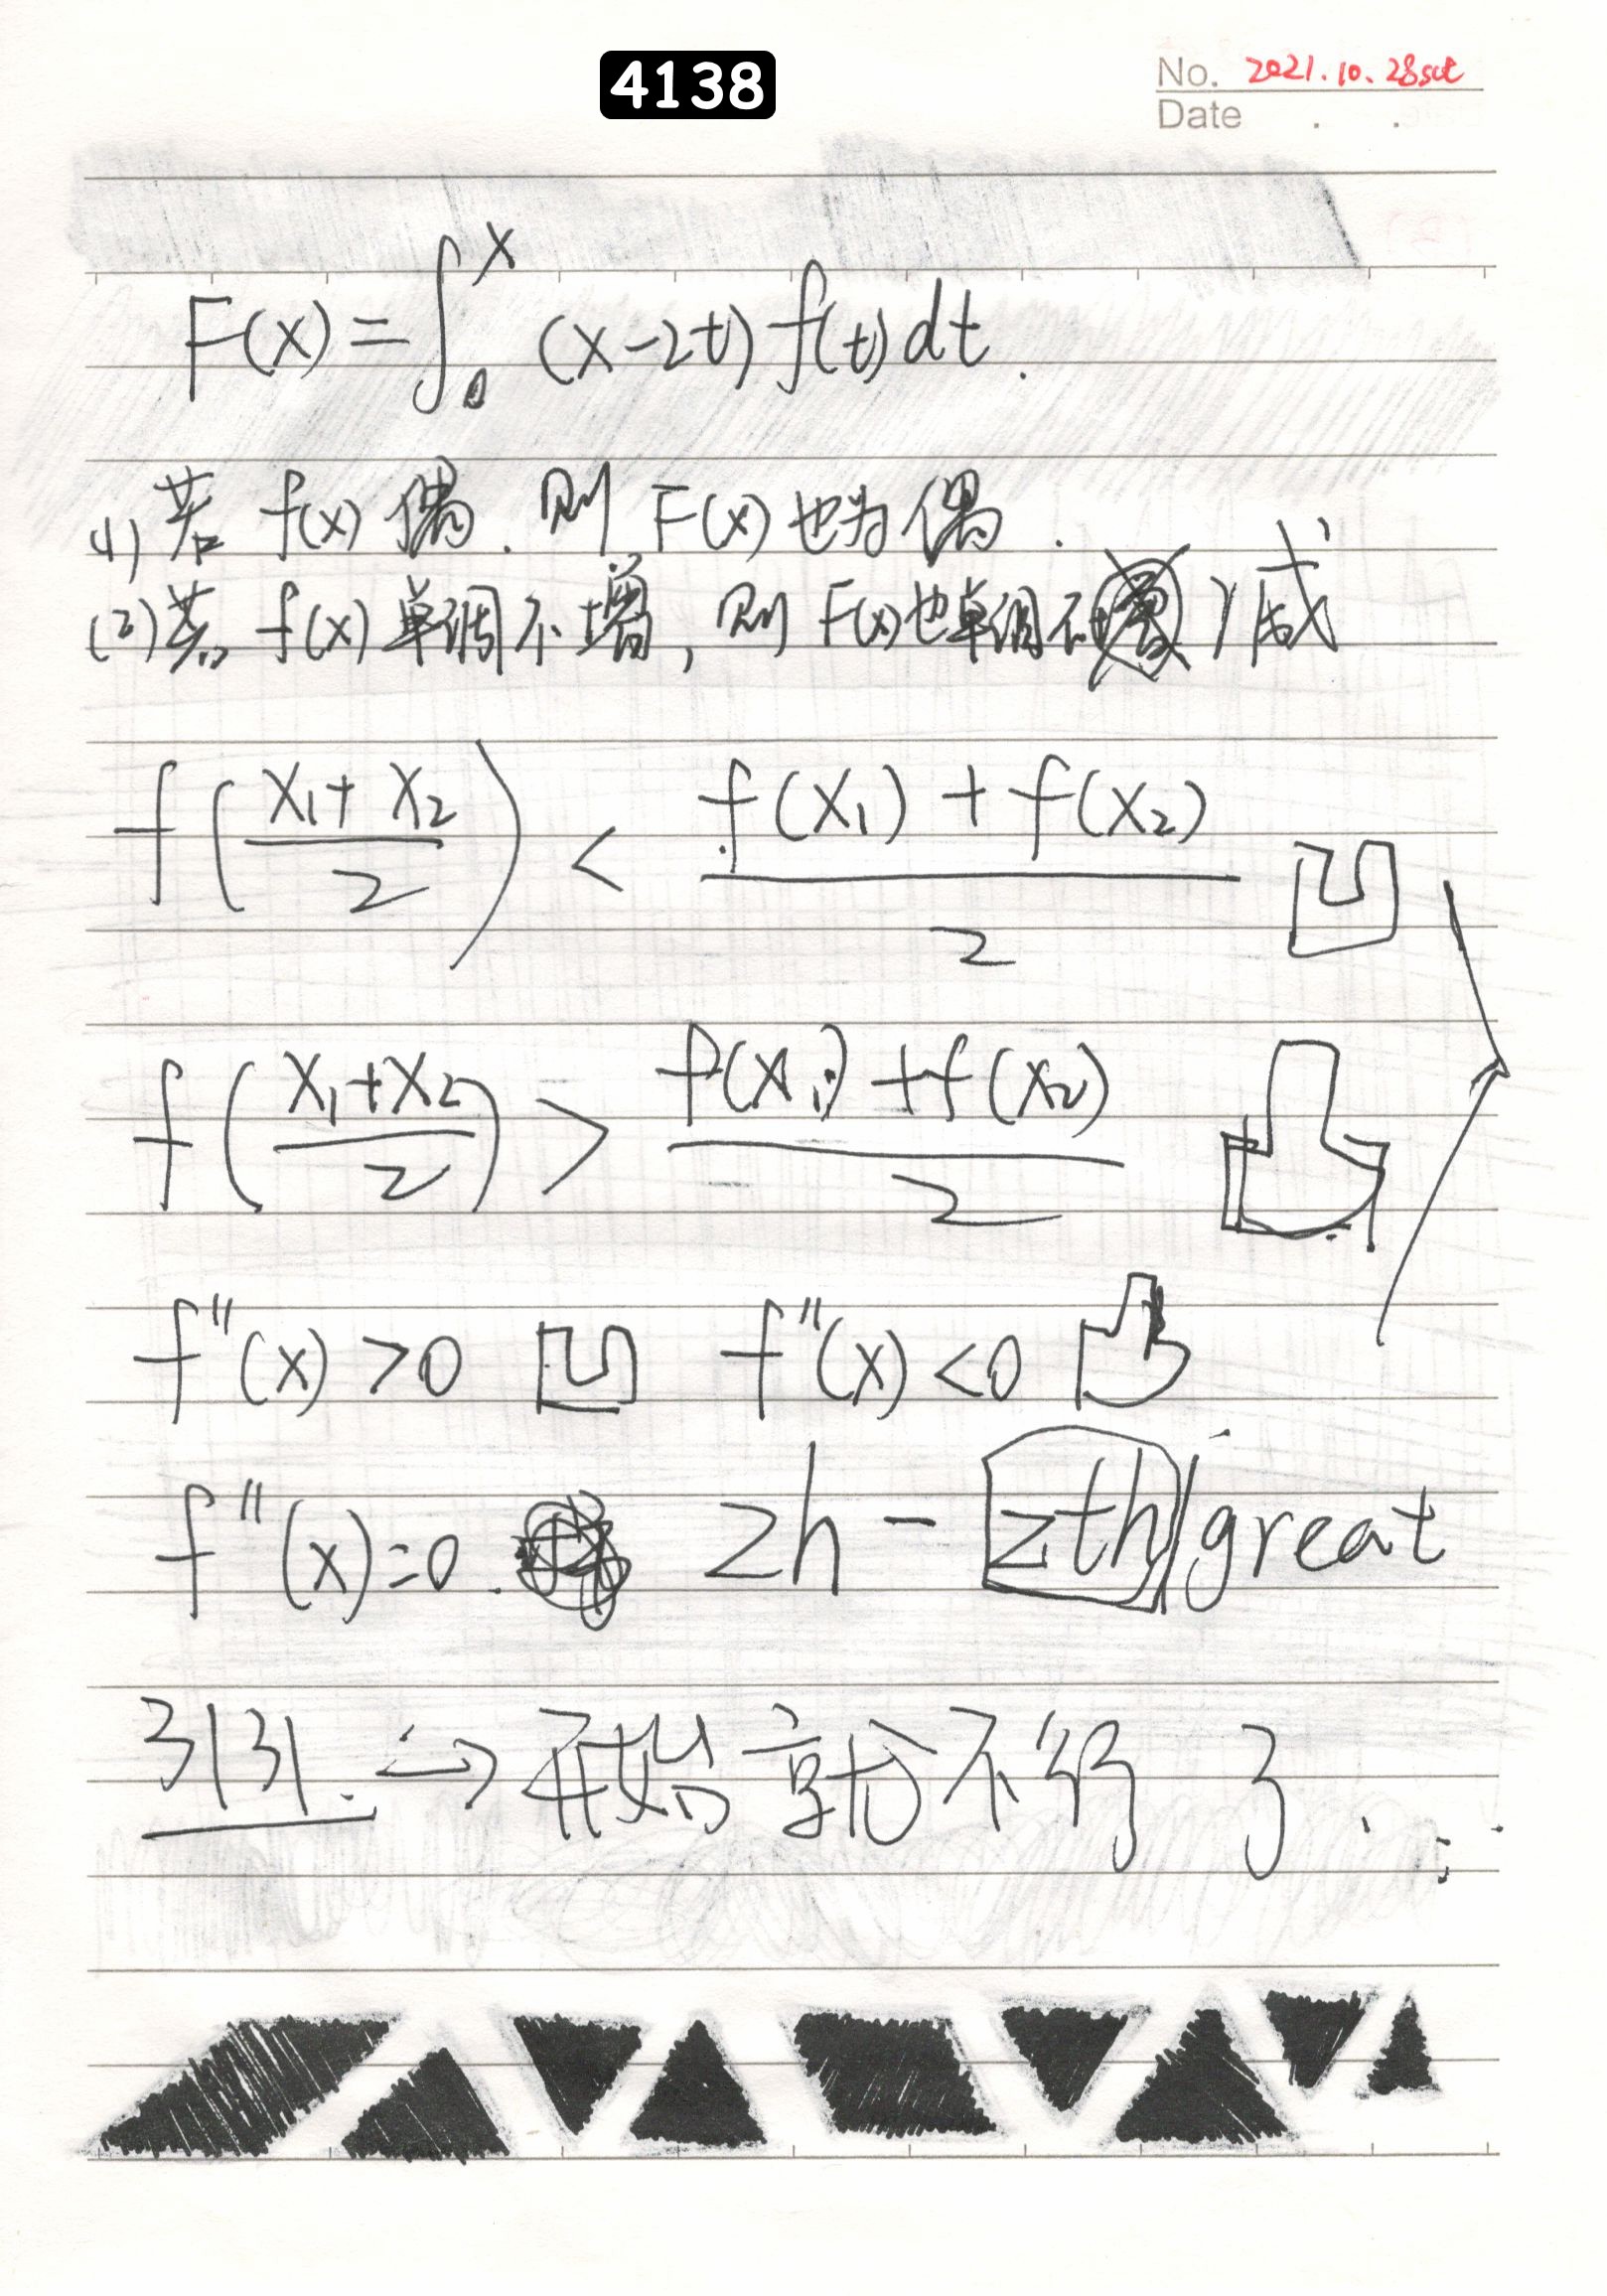 4138
No. 2021.10.28sat
Date . .
F(x)=∫₀ˣ (x-2t) f(t) dt.
(1) 若 f(x) 偶. 则 F(x) 也为偶.
(2) 若 f(x) 单调不增, 则 F(x) 也单调不减
f((x₁+x₂)/2) < (f(x₁)+f(x₂))/2 凹
f((x₁+x₂)/2) > (f(x₁)+f(x₂))/2 凸
f''(x)>0 凹 f''(x)<0 凸
f''(x)=0. zh - zth great
3131. → 开始就不行了...